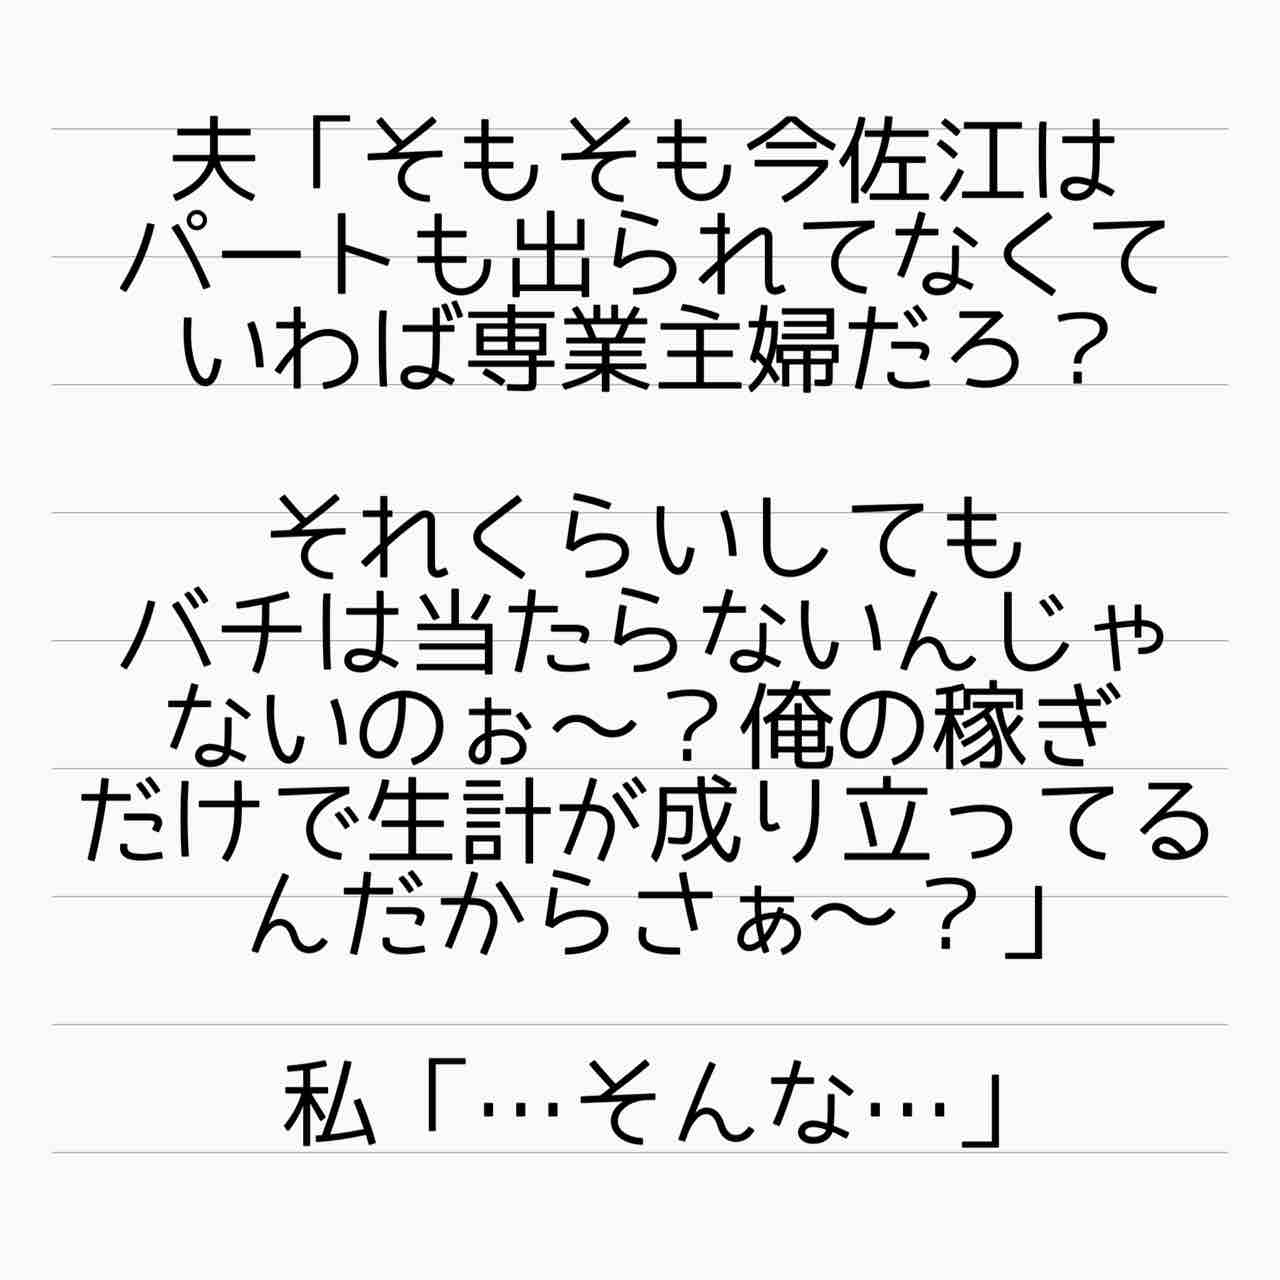 夫「そもそも今佐江は
パートも出られてなくて
いわば専業主婦だろ？
それくらいしても
バチは当たらないんじゃ
ないのぉ〜？俺の稼ぎ
だけで生計が成り立ってる
んだからさぁ〜？」
私「…そんな…」